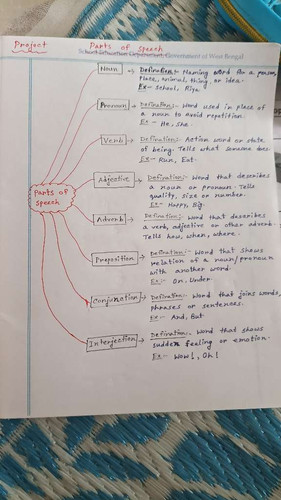 Project Parts of Speech
School Education Department, Government of West Bengal
Parts of Speech
Noun → Defination:- Naming word for a person,
Place, animal, thing or idea.
Ex- School, Riya
Pronoun → Defination:- Word used in place of
a noun to avoid repetition.
Ex - He, She
Verb → Defination:- Action word or state
of being. Tells what someone does.
Ex - Run, Eat.
Adjective → Defination:- Word that describes
a noun or pronoun. Tells
quality, size or number.
Ex- Happy, Big.
Adverb → Defination:- Word that describes
a verb, adjective or other adverb.
Tells how, when, where.
Preposition → Defination:- Word that shows
relation of a noun/pronoun
with another word.
Ex- On, Under
Conjunction → Defination:- Word that joins words,
phrases or sentences.
Ex- And, But
Interjection → Defination:- Word that shows
sudden feeling or emotion.
Ex- Wow!, Oh!